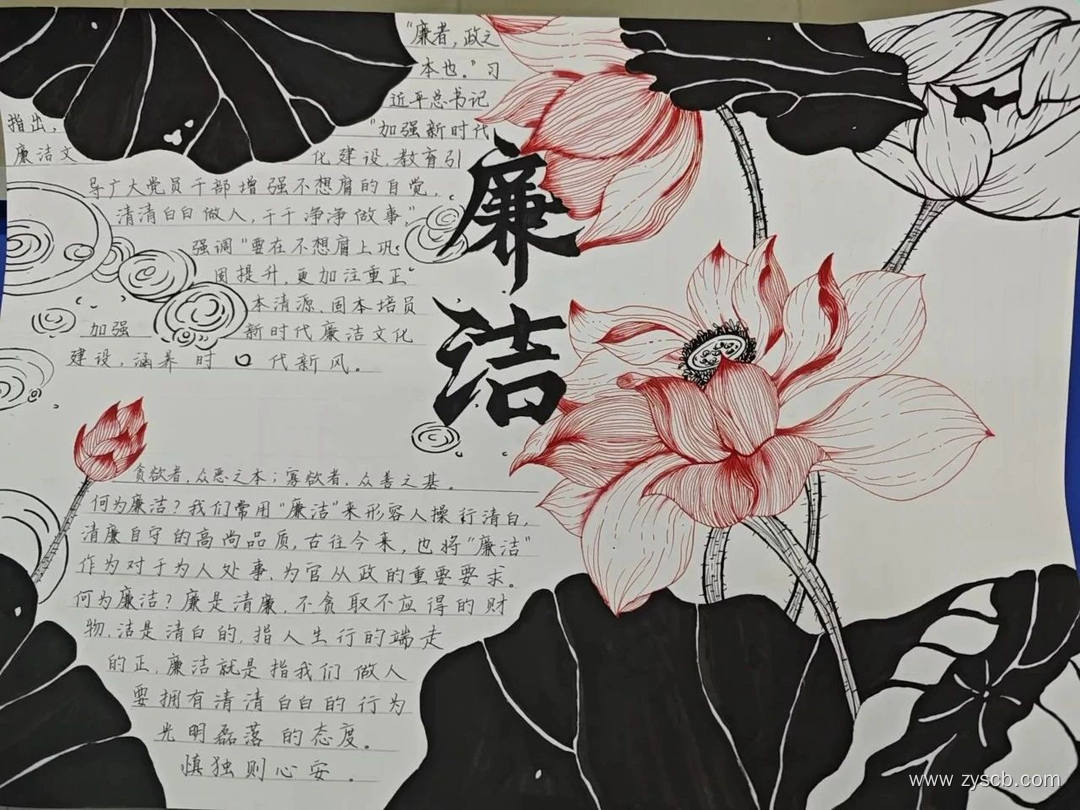 "廉者，政之
本也。"习
近平总书记
指出，"加强新时代
廉洁文化建设，教育引
导广大党员干部增强不想腐的自觉，
清清白白做人，干干净净做事。"
强调"要在不想腐上巩
固提升，更加注重正
本清源、固本培员
加强新时代廉洁文化
建设，涵养时代新风。
廉洁
贪欲者，众恶之本；寡欲者，众善之基。
何为廉洁？我们常用"廉洁"来形容人操行清白，
清廉自守的高尚品质，古往今来，也将"廉洁"
作为对于为人处事，为官从政的重要要求。
何为廉洁？廉是清廉，不贪取不应得的财
物，洁是清白的，指人生行的端走
的正，廉洁就是指我们做人
要拥有清清白白的行为
光明磊落的态度。
慎独则心安。
www.zyscb.com